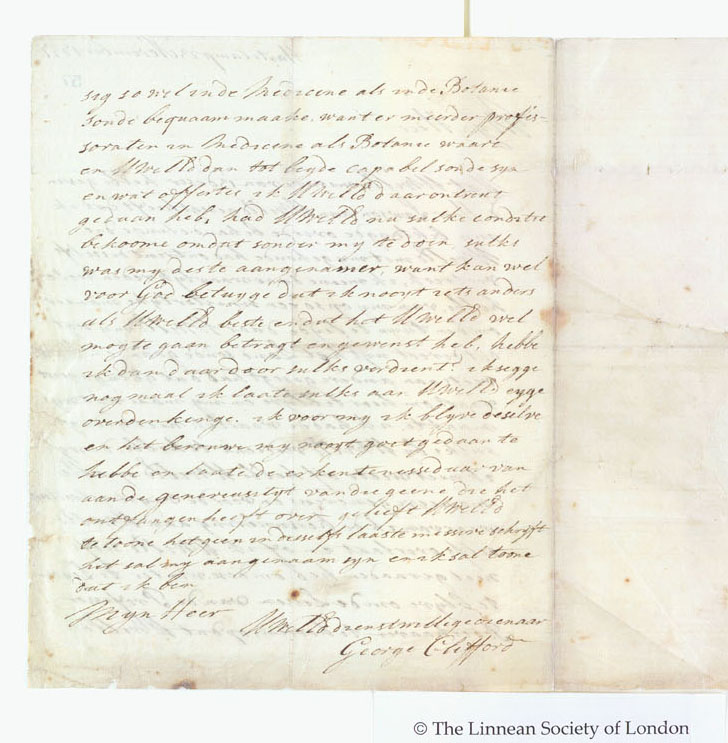 sig so wel in de Medicene als in de Botanie
sonde bequaam maake, want er meerder profes-
soraten in Medicene als Botanie waare
en UWelEd dan tot beyde capabel sonde syn
en wat offertes ik UWelEd daar ontrent
gedaan heb, had UWelEd nu sulke conditie
bekoome omdat sonder my te doen, sulks
was my deste aangenamer, want kan wel
voor God betuyge dat ik nooyt iets anders
als UWelEd beste en dat het UWelEd wel
mogte gaan betragt en gewenst heb, hebbe
ik dan daar door sulks verdient? ik segge
nog maal ik laate sulks aan UWelEd eyge
overdenkinge. ik voor my ik blyve deselve
en het berouwe my nooyt goet gedaan te
hebbe en laate de erkentenisse daar van
aan de genereusityt van die geene die het
ontvangen heeft over, gelieft UWelEd
te toone het geen in deselfs laaste missive schrijft
het sal my aangenaam syn en ik sal toone
dat ik ben
Myn Heer
UWelEd dienstwillige dienaar
George Clifford
© The Linnean Society of London